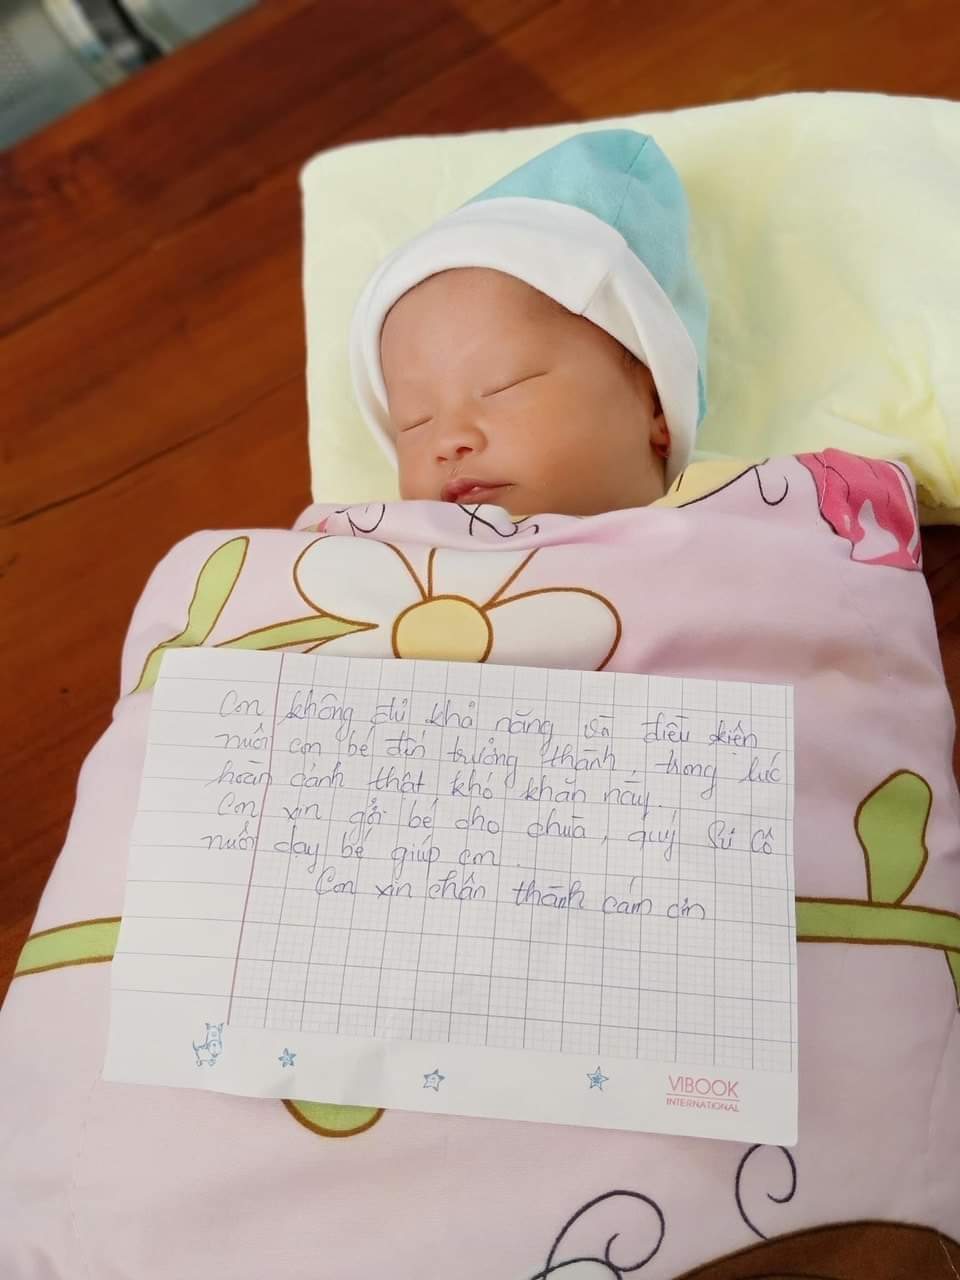 Con không đủ khả năng và điều kiện
nuôi con bé đến trưởng thành, trong lúc
hoàn cảnh thật khó khăn này.
Con xin gởi bé cho chùa, quý Sư Cô
nuôi dạy bé giúp con.
Con xin chân thành cám ơn
VIBOOK
INTERNATIONAL